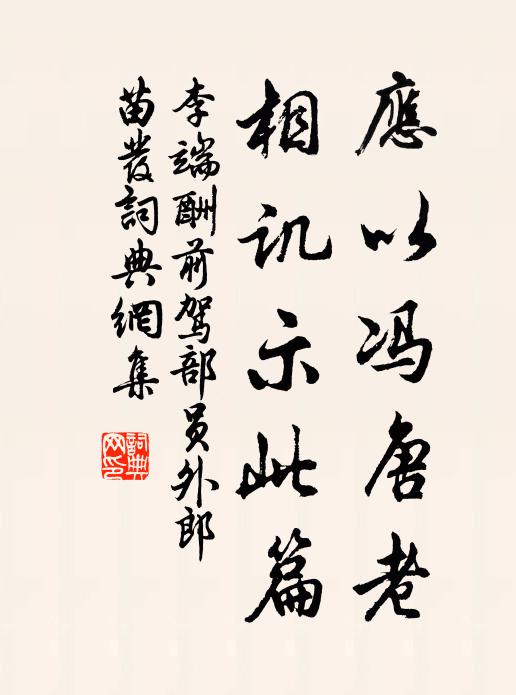 應以冯唐老
相讥示此篇
李端酬前驾部員外郎
苗發詞典網集
詞典網印